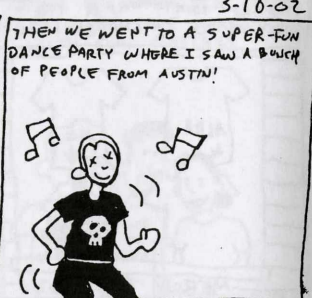 3-10-02
THEN WE WENT TO A SUPER-FUN
DANCE PARTY WHERE I SAW A BUNCH
OF PEOPLE FROM AUSTIN!